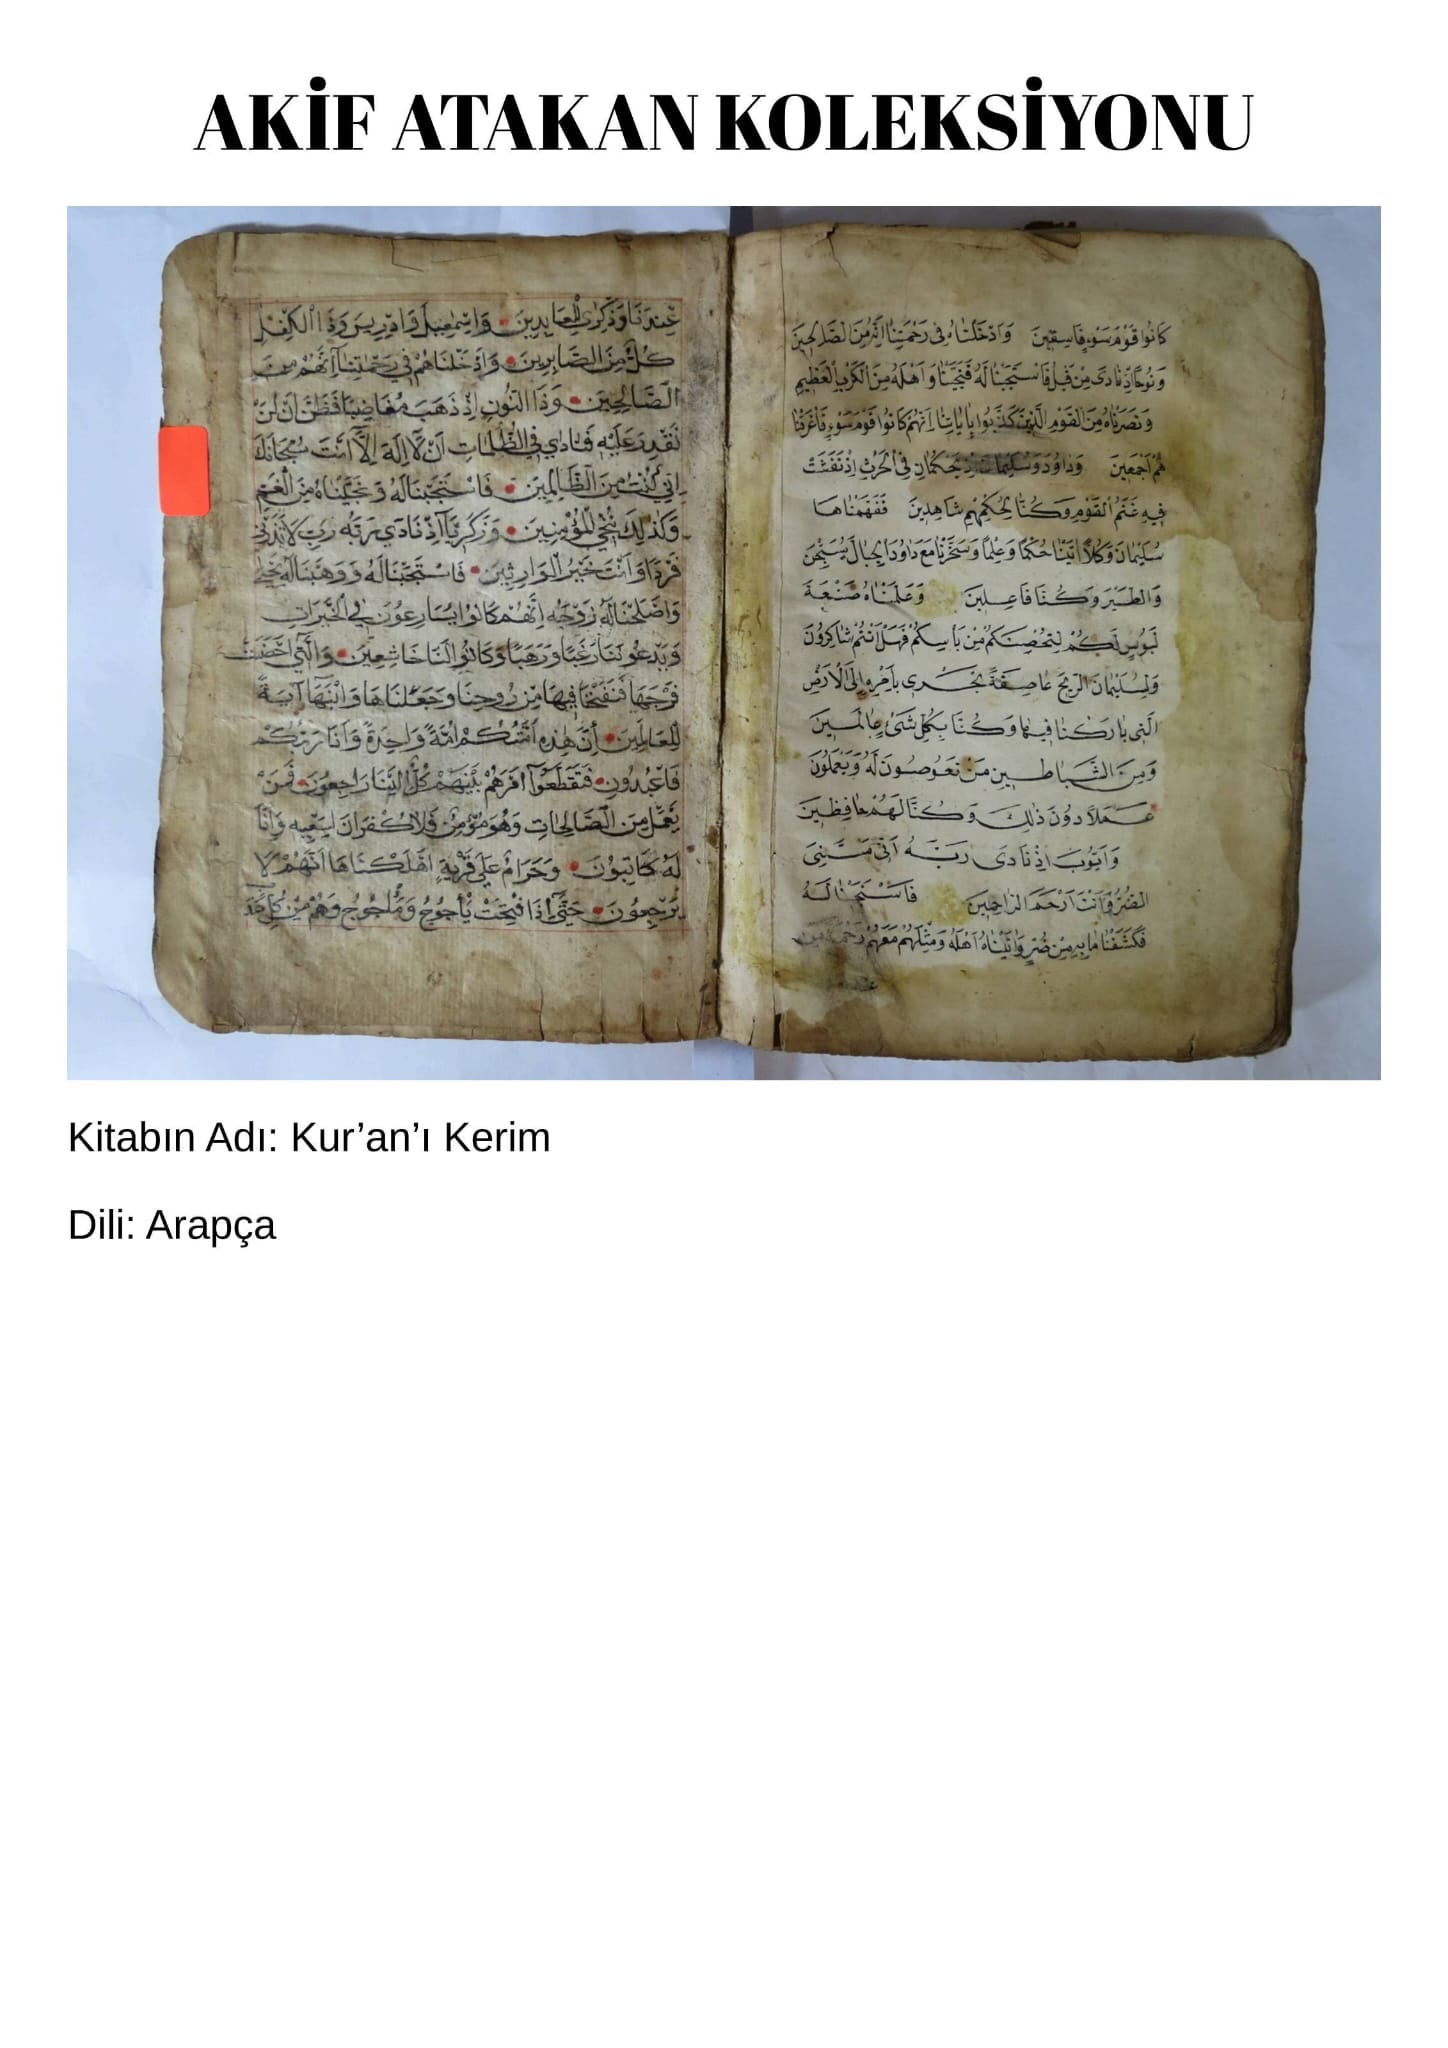 AKİF ATAKAN KOLEKSİYONU
كَانُوا قَوْمَ سَوْءٍ فَاسِقِينَ وَاَدْخَلْنَاهُ فِى رَحْمَتِنَا اِنَّهُ مِنَ الصَّالِحِينَ
وَنُوحًا اِذْ نَادَى مِنْ قَبْلُ فَاسْتَجَبْنَا لَهُ فَنَجَّيْنَاهُ وَاَهْلَهُ مِنَ الْكَرْبِ الْعَظِيمِ
وَنَصَرْنَاهُ مِنَ الْقَوْمِ الَّذِينَ كَذَّبُوا بِاٰيَاتِنَا اِنَّهُمْ كَانُوا قَوْمَ سَوْءٍ فَاَغْرَقْنَا
هُمْ اَجْمَعِينَ وَدَاوُدَ وَسُلَيْمَانَ اِذْ يَحْكُمَانِ فِى الْحَرْثِ اِذْ نَفَشَتْ
فِيهِ غَنَمُ الْقَوْمِ وَكُنَّا لِحُكْمِهِمْ شَاهِدِينَ فَفَهَّمْنَاهَا
سُلَيْمَانَ وَكُلاًّ اٰتَيْنَا حُكْمًا وَعِلْمًا وَسَخَّرْنَا مَعَ دَاوُدَ الْجِبَالَ يُسَبِّحْنَ
وَالطَّيْرَ وَكُنَّا فَاعِلِينَ وَعَلَّمْنَاهُ صَنْعَةَ
لَبُوسٍ لَكُمْ لِتُحْصِنَكُمْ مِنْ بَأْسِكُمْ فَهَلْ اَنْتُمْ شَاكِرُونَ
وَلِسُلَيْمَانَ الرِّيحَ عَاصِفَةً تَجْرِى بِاَمْرِهِ اِلَى الْاَرْضِ
الَّتِى بَارَكْنَا فِيهَا وَكُنَّا بِكُلِّ شَىْءٍ عَالِمِينَ
وَمِنَ الشَّيَاطِينِ مَنْ يَغُوصُونَ لَهُ وَيَعْمَلُونَ
عَمَلاً دُونَ ذٰلِكَ وَكُنَّا لَهُمْ حَافِظِينَ
وَاَيُّوبَ اِذْ نَادَى رَبَّهُ اَنِّى مَسَّنِىَ
الضُّرُّ وَاَنْتَ اَرْحَمُ الرَّاحِمِينَ فَاسْتَجَبْنَا لَهُ
فَكَشَفْنَا مَا بِهِ مِنْ ضُرٍّ وَاٰتَيْنَاهُ اَهْلَهُ وَمِثْلَهُمْ مَعَهُمْ رَحْمَةً مِنْ
عِنْدِنَا وَذِكْرٰى لِلْعَابِدِينَ وَاِسْمٰعِيلَ وَاِدْرِيسَ وَذَا الْكِفْلِ
كُلٌّ مِنَ الصَّابِرِينَ وَاَدْخَلْنَاهُمْ فِي رَحْمَتِنَا اِنَّهُمْ مِنَ
الصَّالِحِينَ وَذَا النُّونِ اِذْ ذَهَبَ مُغَاضِبًا فَظَنَّ اَنْ لَنْ
نَقْدِرَ عَلَيْهِ فَنَادٰي فِي الظُّلُمَاتِ اَنْ لَا اِلٰهَ اِلَّا اَنْتَ سُبْحَانَكَ
اِنِّي كُنْتُ مِنَ الظَّالِمِينَ فَاسْتَجَبْنَا لَهُ وَنَجَّيْنَاهُ مِنَ الْغَمِّ
وَكَذٰلِكَ نُنْجِي الْمُؤْمِنِينَ وَزَكَرِيَّا اِذْ نَادٰي رَبَّهُ رَبِّ لَا تَذَرْنِي
فَرْدًا وَاَنْتَ خَيْرُ الْوَارِثِينَ فَاسْتَجَبْنَا لَهُ وَوَهَبْنَا لَهُ يَحْيٰي
وَاَصْلَحْنَا لَهُ زَوْجَهُ اِنَّهُمْ كَانُوا يُسَارِعُونَ فِي الْخَيْرَاتِ
وَيَدْعُونَنَا رَغَبًا وَرَهَبًا وَكَانُوا لَنَا خَاشِعِينَ وَالَّتِي اَحْصَنَتْ
فَرْجَهَا فَنَفَخْنَا فِيهَا مِنْ رُوحِنَا وَجَعَلْنَاهَا وَابْنَهَا اٰيَةً
لِلْعَالَمِينَ اِنَّ هٰذِهِ اُمَّتُكُمْ اُمَّةً وَاحِدَةً وَاَنَا رَبُّكُمْ
فَاعْبُدُونِ فَتَقَطَّعُوا اَمْرَهُمْ بَيْنَهُمْ كُلٌّ اِلَيْنَا رَاجِعُونَ فَمَنْ
يَعْمَلْ مِنَ الصَّالِحَاتِ وَهُوَ مُؤْمِنٌ فَلَا كُفْرَانَ لِسَعْيِهِ وَاِنَّا
لَهُ كَاتِبُونَ وَحَرَامٌ عَلٰي قَرْيَةٍ اَهْلَكْنَاهَا اَنَّهُمْ لَا
يَرْجِعُونَ حَتّٰي اِذَا فُتِحَتْ يَأْجُوجُ وَمَأْجُوجُ وَهُمْ مِنْ كُلِّ حَدَ
Kitabın Adı: Kur’an’ı Kerim
Dili: Arapça